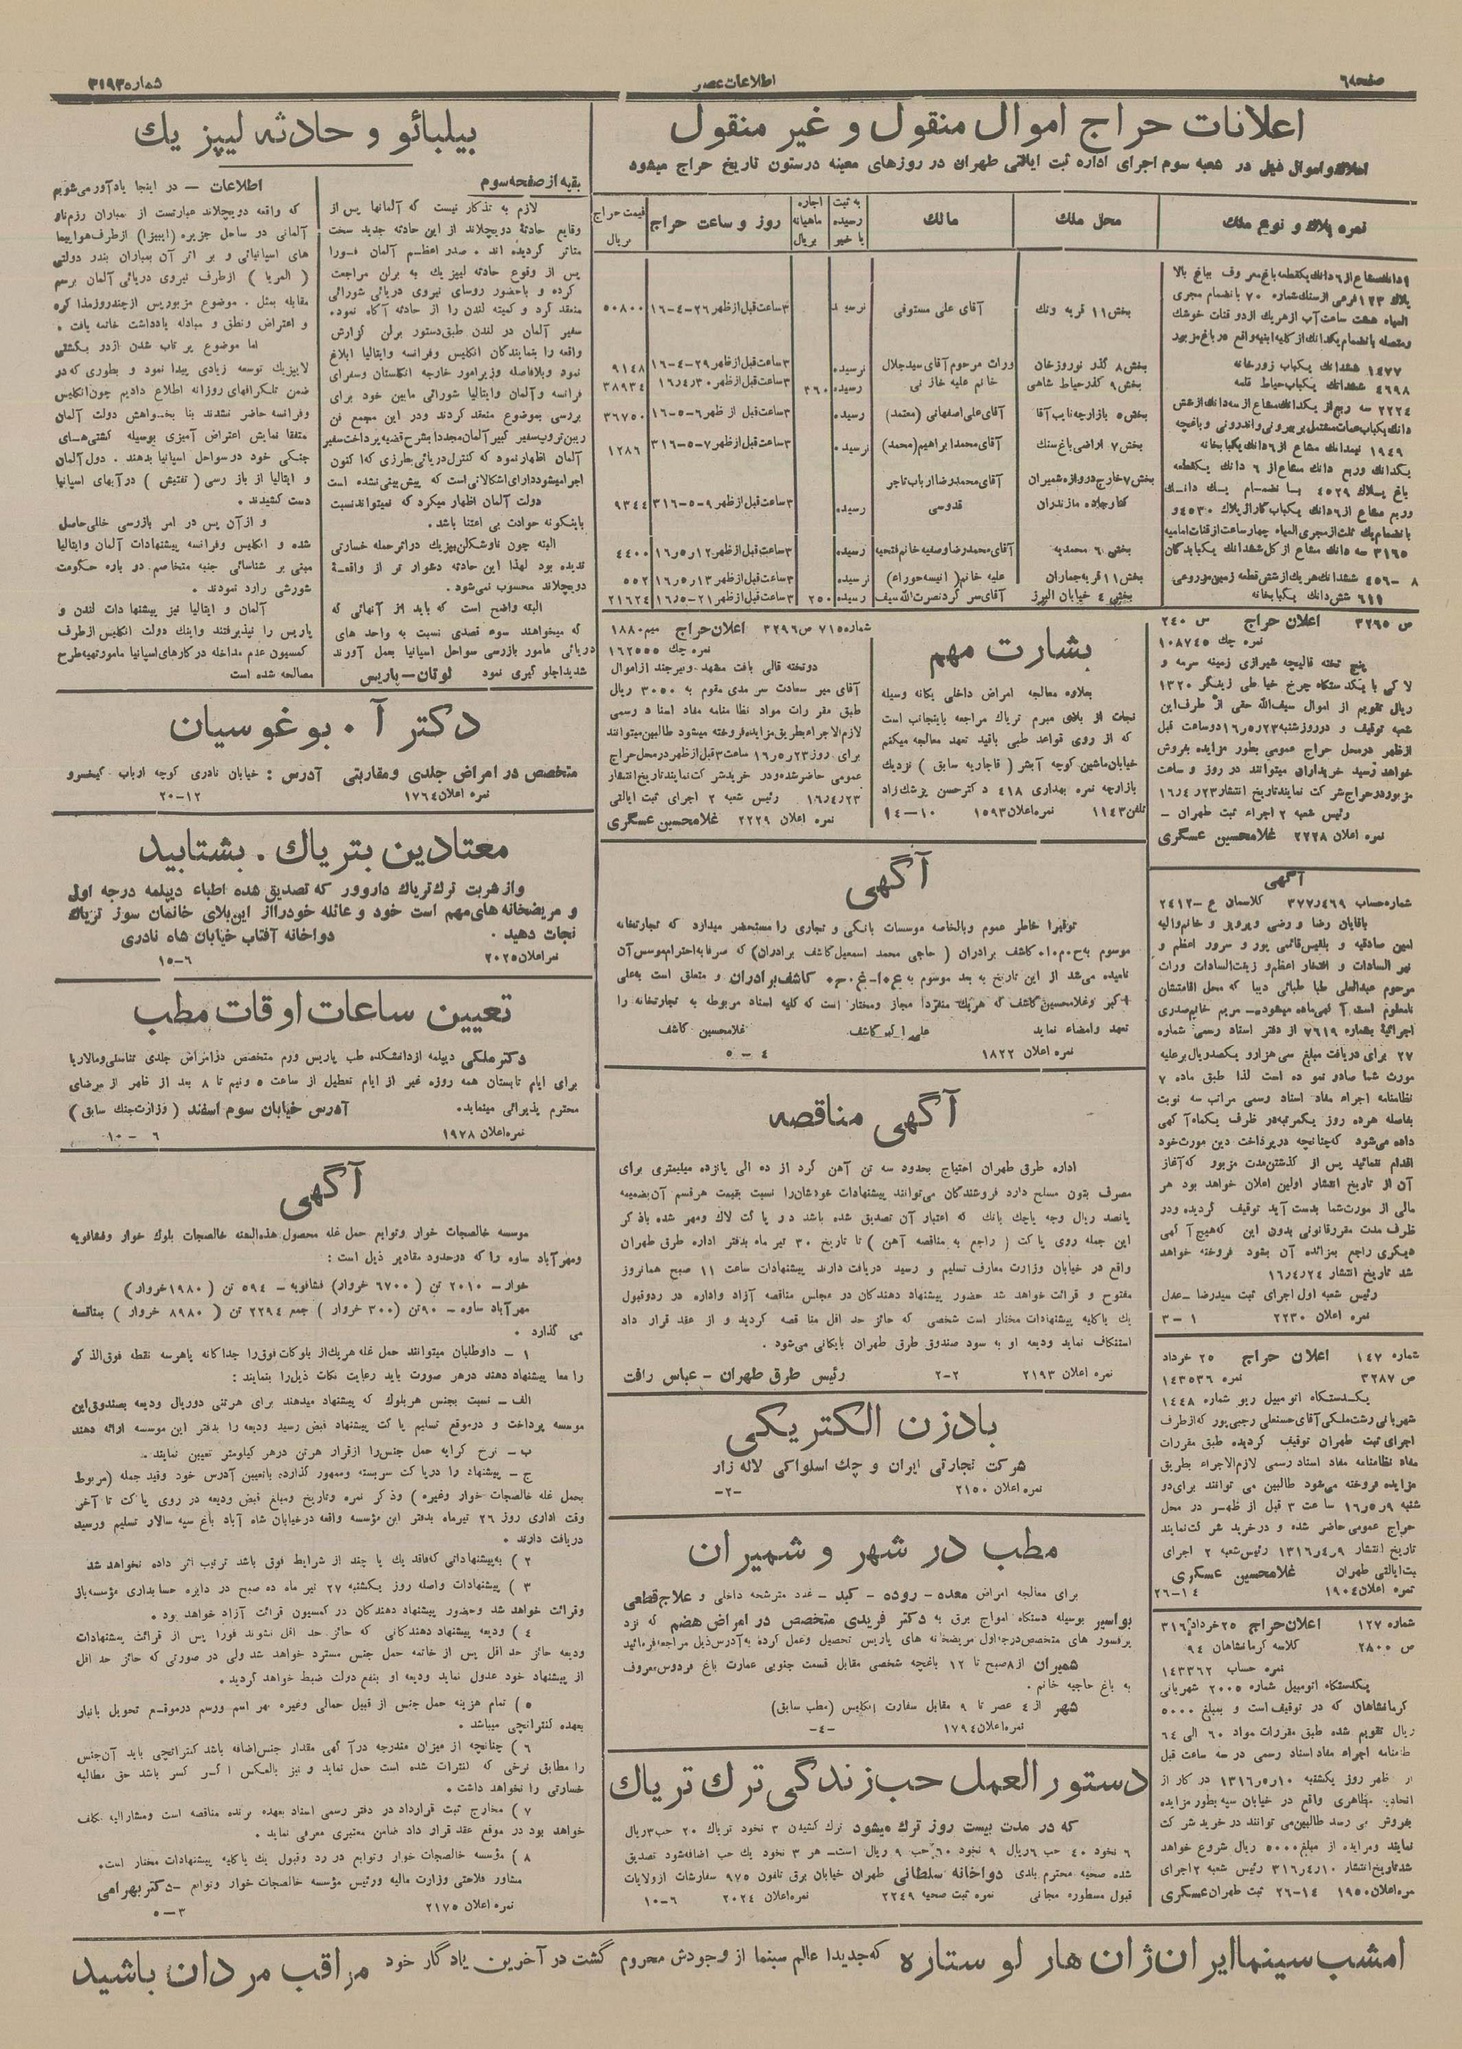 صفحه ۶
اطلاعات عصر
شماره ۳۱۹۳
اعلانات حراج اموال منقول و غیر منقول
املاك و اموال ذیل در شعبه سوم اجرای اداره ثبت ایالتی طهران در روزهای معینه درستون تاریخ حراج میشود
نمره پلاك و نوع ملك
محل ملك
مالك
به ثبت رسیده یا خیر
اجاره ماهیانه بریال
روز و ساعت حراج
قیمت حراج بریال
بخش ۱۱ قریه ونك
آقای علی مستوفی
نرسیده
۳ساعت قبل از ظهر ۲۶-۴-۱۶
۵۰۸۰۰
۱۴۷۷ ششدانك یکباب زورخانه
بخش ۸ گذر نوروزخان
وراث مرحوم آقای سیدجلال
نرسیده
۳ساعت قبل از ظهر ۲۹-۴-۱۶
۹۱۴۸
۴۶۹۸ ششدانك یکباب حیاط
بخش ۹ گذر حیاط شاهی
رسیده
۳۶۰
۳ساعت قبل از ظهر ۳۰ر۴ر۱۶
۳۸۹۳۴
بخش ۵ بازارچه نایب آقا
آقای علی اصفهانی (معتمد)
رسیده
۳ساعت قبل از ظهر ۶-۵-۱۶
۳۶۷۵۰
بخش ۷ اراضی باغ سنك
آقای محمدابراهیم (محمد)
نرسیده
۳ساعت قبل از ظهر ۷-۵-۳۱۶
۱۲۸۶
بخش ۷ خارج دروازه شمیران
کنار جاده مازندران
آقای محمدرضا ارباب تاجر
قدوسی
رسیده
۳ساعت قبل از ظهر ۹-۵-۳۱۶
۹۳۴۴
بخش ۶ محمدیه
آقای محمدرضا وصفیه خانم فتحیه
رسیده
۳ساعت قبل از ظهر ۱۲ر۵ر۱۶
۴۴۰۰
بخش ۱۱ قریه جماران
علیه خانم (انیسه حوراء)
نرسیده
۳ساعت قبل از ظهر ۱۳ر۵ر۱۶
۵۵۲
۶۱۱ شش دانك یکبابخانه
بخش ۴ خیابان البرز
آقای سرگرد نصرت الله سیف
رسیده
۲۵۰
۳ساعت قبل از ظهر ۲۱-۵ر۱۶
۲۱۶۲۴
ص ۳۲۶۵ اعلان حراج س ۲۴۰
نمره چك ۱۰۸۷۴۵
پنج تخته قالیچه شیرازی زمینه سرمه و
لاکی با یکدستگاه چرخ خیاطی زینگر ۱۳۲۰
ریال تقویم از اموال سیف‌الله حقی از طرف این
شعبه توقیف و در روز شنبه ۲۳ر۵ر۱۶ دو ساعت قبل
از ظهر در محل حراج عمومی بطور مزایده بفروش
خواهد رسید خریداران میتوانند در روز و ساعت
مزبور در حراج شرکت نمایند تاریخ انتشار ۲۳ر۴ر۱۶
رئیس شعبه ۲ اجراء ثبت طهران –
نمره اعلان ۲۲۲۸ غلامحسین عسگری
آگهی
شماره حساب ۴۶۹ر۳۷۷ کلاسمان ع –۲۴۱۲
باقایان رضا و رضی و پرویز و خانم والیه
امین صادقیه و بلقیس قائمی پور و سرور اعظم و
نیر السادات و افتخار اعظم و زینت‌السادات وراث
مرحوم عبدالعلی طبا طبائی دیبا که محل اقامتشان
نامعلوم است آگهی‌ماده میشود– مریم خانم صدری
اجرائیهٔ بشماره ۷۶۱۹ از دفتر اسناد رسمی شماره
۲۷ برای دریافت مبلغ سی هزار و یکصد ریال بر علیه
مورث شما صادر نموده است لذا طبق ماده ۷
نظامنامه اجراء مفاد اسناد رسمی مراتب سه نوبت
بفاصله هرده روز یکمرتبه در ظرف یکماه آگهی
داده می‌شود که چنانچه در پرداخت دین مورث خود
اقدام ننمائید پس از گذشتن مدت مزبور که آغاز
آن از تاریخ انتشار اولین اعلان خواهد بود هر
مالی از مورث شما بدست آید توقیف گردیده و در
ظرف مدت مقرر قانونی بدون این که هیچ آگهی
دیگری راجع بمزائده آن بشود فروخته خواهد
شد تاریخ انتشار ۲۴ر۴ر۱۶
رئیس شعبه اول اجرای ثبت سیدرضا – عدل
نمره اعلان ۲۲۳۰ ۱–۳
شماره ۱۴۷ اعلان حراج ۲۵ خرداد
ص ۳۲۸۷ نمره ۱۴۳۵۳۶
یکدستگاه اتومبیل ریو شماره ۱۴۴۸
شهربانی رشت ملکی آقای حسنعلی رجبی پور که از طرف
اجرای ثبت طهران توقیف گردیده طبق مقررات
مفاد نظامنامه مفاد اسناد رسمی لازم‌الاجراء بطریق
مزایده فروخته می‌شود طالبین می توانند برای دو
شنبه ۹ر۵ر۱۶ ساعت ۳ قبل از ظهر در محل
حراج عمومی حاضر شده و در خرید شرکت نمایند
تاریخ انتشار ۹ر۴ر۱۳۱۶ رئیس شعبه ۲ اجرای
ثبت ایالتی طهران غلامحسین عسکری
نمره اعلان ۱۹۰۴ ۱۴–۲۶
شماره ۱۲۷ اعلان حراج ۲۵ خرداد ۳۱۶
ص ۲۸۰۰ کلاسه کرمانشاهان ۹۴
نمره حساب ۱۴۳۳۶۲
یکدستگاه اتومبیل شماره ۲۰۰۵ شهربانی
کرمانشاهان که در توقیف است و بمبلغ ۵۰۰۰
ریال تقویم شده طبق مقررات مواد ۶۰ الی ۶۴
نظامنامه اجراء مفاد اسناد رسمی در سه ساعت قبل
از ظهر روز یکشنبه ۱۰ر۵ر۱۳۱۶ در گاراژ
واقع در خیابان سپه بطور مزایده
بفروش می رسد طالبین می توانند در خرید شرکت
نمایند و مزایده از مبلغ ۵۰۰۰ ریال شروع خواهد
شد تاریخ انتشار ۱۰ر۴ر۳۱۶ رئیس شعبه ۲ اجرای
نمره اعلان ۱۹۵۰ ۱۴–۲۶ ثبت طهران عسگری
بشارت مهم
بعلاوه معالجه امراض داخلی یگانه وسیله
نجات از بلای مبرم تریاك مراجعه باینجانب است
که از روی قواعد طبی باقید تعهد معالجه میکنم
خیابان ماشین کوچه آبشر (قاجاریه سابق) نزدیك
بازارچه نمره بهداری ۴۱۸ دکتر حسن پزشك زاد
تلفن ۱۱۴۳ نمره اعلان ۱۵۹۳ ۱۰–۱۴
شماره ۷۱۵ ص ۳۲۹۶ اعلان حراج میم ۱۸۸۰
نمره چك ۱۶۲۵۵۵
دوتخته قالی بافت مشهد و بیرجند از اموال
آقای میر سعادت سرمدی مقوم به ۳۰۵۰ ریال
طبق مقررات مواد نظامنامه مفاد اسناد رسمی
لازم‌الاجراء بطریق مزایده فروخته میشود طالبین میتوانند
برای روز ۲۳ر۵ر۱۶ ساعت ۳ قبل از ظهر در محل حراج
عمومی حاضر شده و در خرید شرکت نمایند تاریخ انتشار
۲۳ر۴ر۱۶ رئیس شعبه ۲ اجرای ثبت ایالتی
نمره اعلان ۲۲۲۹ غلامحسین عسگری
آگهی
توقیراً خاطر عموم وبالخاصه موسسات بانکی و تجاری را مستحضر میدارد که تجارتخانه
موسوم به ح۰م۰ا۰ کاشف برادران (حاجی محمد اسمعیل کاشف برادران) که سرفا به احترام موسس آن
نامیده می‌شد از این تاریخ به بعد موسوم به کاشف برادران و متعلق است به علی
اکبر و غلامحسین کاشف که هریك منفرداً مجاز و مختار است که کلیه اسناد مربوطه به تجارتخانه را
تعهد وامضاء نماید علی اکبر کاشف غلامحسین کاشف
نمره اعلان ۱۸۲۲ ۴–۵
آگهی مناقصه
اداره طرق طهران احتیاج بحدود سه تن آهن گرد از ده الی پانزده میلیمتری برای
مصرف بتون مسلح دارد فروشندگان می‌توانند پیشنهادات خودشان را نسبت بقیمت هرقسم آن بضمیمه
پانصد ریال وجه یا چك بانك که اعتبار آن تصدیق شده باشد در پاکت لاك ومهر شده باذکر
این جمله روی پاکت (راجع به مناقصه آهن) تا تاریخ ۳۰ تیر ماه بدفتر اداره طرق طهران
واقع در خیابان وزارت معارف تسلیم و رسید دریافت دارند پیشنهادات ساعت ۱۱ صبح همانروز
مفتوح و قرائت خواهد شد حضور پیشنهاد دهندگان در مجلس مناقصه آزاد واداره در رد وقبول
یك یا کلیه پیشنهادات مختار است شخصی که حائز حد اقل مناقصه گردید و از عقد قرار داد
استنکاف نماید ودیعه او به سود صندوق طرق طهران بایگانی می‌شود.
نمره اعلان ۲۱۹۳ ۲–۲ رئیس طرق طهران – عباس رافت
بادزن الکتریکی
شرکت تجارتی ایران و چك اسلواکی لاله زار
نمره اعلان ۲۱۵۰ –۲–
مطب در شهر و شمیران
برای معالجه امراض معده – روده – کبد – غدد مترشحه داخلی و علاج قطعی
بواسیر بوسیله دستگاه امواج برق به دکتر فریدی متخصص در امراض هضم که نزد
پرفسور های متخصص درجه اول مریضخانه های پاریس تحصیل وعمل کرده به آدرس ذیل مراجعه فرمائید
شمیران از ۸صبح تا ۱۲ باغچه شخصی مقابل قسمت جنوبی عمارت باغ فردوس معروف
به باغ حاجیه خانم.
شهر از ۴ عصر تا ۹ مقابل سفارت انگلیس (مطب سابق)
نمره اعلان ۱۷۹۴ –۴–
دستور العمل حب زندگی ترك تریاك
که در مدت بیست روز ترك میشود ترك کشیدن ۳ نخود تریاك ۲۰ حب ۳ریال
۶ نخود ۴۰ حب ۶ریال ۹ نخود ۶۰ حب ۹ ریال است– هر ۳ نخود یك حب اضافه شود تصدیق
شده صحیه محترم بلدی دواخانه سلطانی طهران خیابان برق تلفون ۹۷۵ سفارشات از ولایات
قبول مسطوره مجانی نمره ثبت صحیه ۲۲۴۹ نمره اعلان ۲۰۲۴ ۶–۱۰
بیلبائو و حادثه لیپزیك
بقیه از صفحه سوم
لازم به تذکار نیست که آلمانها پس از
وقایع حادثهٔ دویچلاند از این حادثه جدید سخت
متاثر گردیده اند. صدراعظم آلمان فورا
پس از وقوع حادثه لیپزیك به برلن مراجعت
کرده و باحضور روسای نیروی دریائی شورائی
منعقد کرد و کمیته لندن را از حادثه آگاه نمود.
سفیر آلمان در لندن طبق دستور برلن گزارش
واقعه را بنمایندگان انگلیس وفرانسه وایتالیا ابلاغ
نمود وبلافاصله وزیرامور خارجه انگلستان وسفرای
فرانسه وآلمان وایتالیا شورائی مابین خود برای
بررسی بموضوع منعقد کردند ودر این مجمع فن
ریبن تروپ سفیر کبیر آلمان مجددا بشرح قضیه پرداخت سفیر
آلمان اظهار نمود که کنترل دریائی بطرزی که اکنون
اجرا میشود دارای اشکالاتی است که پیش بینی نشده است
دولت آلمان اظهار میکرد که نمیتواند نسبت
باینگونه حوادث بی اعتنا باشد.
البته چون ناوشکن لیپزیك در اثر حمله خسارتی
ندیده بود لهذا این حادثه دشوار تر از واقعهٔ
دویچلاند محسوب نمی‌شود.
البته واضح است که باید از آنهائی که
که میخواهند سوء قصدی نسبت به واحد های
دریائی مأمور بازرسی سواحل اسپانیا بعمل آورند
شدیداجلوگیری نمود لوتان–پاریس
اطلاعات – در اینجا یادآور می‌شویم
که واقعه دویچلاند عبارتست از بمباران رزم ناو
آلمانی در ساحل جزیره (ایبیزا) از طرف هواپیما
های اسپانیائی و بر اثر آن بمباران بندر دولتی
(المریا) از طرف نیروی دریائی آلمان برسم
مقابله بمثل. موضوع مزبور پس از چند روز مذاکره
و اعتراض ونطق و مبادله یادداشت خاتمه یافت.
اما موضوع پرتاب شدن اژدر بکشتی
لایپزیك توسعه زیادی پیدا نمود و بطوری که در
ضمن تلگرافهای روزانه اطلاع دادیم چون انگلیس
وفرانسه حاضر نشدند بنا بخواهش دولت آلمان
متفقا نمایش اعتراض آمیزی بوسیله کشتی‌های
جنگی خود در سواحل اسپانیا بدهند. دول آلمان
و ایتالیا از باز رسی (تفتیش) در آبهای اسپانیا
دست کشیدند.
و از آن پس در امر بازرسی خللی حاصل
شده و انگلیس وفرانسه پیشنهادات آلمان وایتالیا
مبنی بر شناسائی جنبه متخاصم در باره حکومت
شورشی رارد نمودند.
آلمان و ایتالیا نیز پیشنهادات لندن و
پاریس را نپذیرفتند واینك دولت انگلیس از طرف
کمیسیون عدم مداخله در کارهای اسپانیا مامور تهیه طرح
مصالحه شده است
دکتر آ. بوغوسیان
متخصص در امراض جلدی ومقاربتی آدرس: خیابان نادری کوچه ارباب کیخسرو
نمره اعلان ۱۷۶۴ ۱۲–۲۰
معتادین بتریاك. بشتابید
واز شربت ترك تریاك داروور که تصدیق شده اطباء دیپلمه درجه اول
و مریضخانه های مهم است خود و عائله خودرااز این بلای خانمان سوز تریاك
نجات دهید. دواخانه آفتاب خیابان شاه نادری
نمره اعلان ۲۰۲۵ ۶–۱۵
تعیین ساعات اوقات مطب
دکتر ملکی دیپلمه ازدانشکده طب پاریس ورم متخصص درامراض جلدی تناسلی ومالاریا
برای ایام تابستان همه روزه غیر از ایام تعطیل از ساعت ۵ ونیم تا ۸ بعد از ظهر از مرضای
محترم پذیرائی مینماید. آدرس خیابان سوم اسفند (وزارت جنك سابق)
نمره اعلان ۱۹۷۸ ۶–۱۰
آگهی
موسسه خالصجات خوار وتوابع حمل غله محصول هذه‌السنه خالصجات بلوك خوار وفشافویه
ومهرآباد ساوه را که درحدود مقادیر ذیل است:
خوار – ۲۰۱۰ تن (۶۷۰۰ خروار) فشافویه – ۵۹۴ تن (۱۹۸۰خروار)
مهرآباد ساوه – ۹۰تن (۳۰۰ خروار) جمع ۲۲۹۴ تن (۸۹۸۰ خروار) بمناقصه
می گذارد.
۱ – داوطلبان میتوانند حمل غله هریك از بلوکات فوق را جداگانه یاهرسه نقطه فوق‌الذکر
را معا پیشنهاد دهند درهر صورت باید رعایت نکات ذیل‌را بنمایند:
الف – نسبت بجنس هربلوك که پیشنهاد میدهند برای هرتنی دوریال ودیعه بصندوق این
موسسه پرداخت و درموقع تسلیم پاکت پیشنهاد قبض رسید ودیعه را بدفتر این موسسه ارائه دهند
ب – نرخ کرایه حمل جنس‌را ازقرار هرتن درهر کیلومتر تعیین نمایند.
ج – پیشنهاد را درپاکت سربسته وممهور گذارده باتعیین آدرس خود وقید جمله (مربوط
بحمل غله خالصجات خوار وغیره) وذکر نمره وتاریخ ومبلغ قبض ودیعه در روی پاکت تا آخر
وقت اداری روز ۲۶ تیرماه بدفتر این مؤسسه واقعه درخیابان شاه آباد باغ سپه سالار تسلیم ورسید
دریافت دارند.
۲) به پیشنهاداتی که فاقد یك یا چند از شرایط فوق باشد ترتیب اثر داده نخواهد شد
۳) پیشنهادات واصله روز یکشنبه ۲۷ تیر ماه ده صبح در دایره حسابداری مؤسسه باز
وقرائت خواهد شد وحضور پیشنهاد دهندگان در کمسیون قرائت آزاد خواهد بود.
۴) ودیعه پیشنهاد دهندگانی که حائز حد اقل نشوند فورا پس از قرائت پیشنهادات
ودیعه حائز حد اقل پس از خاتمه حمل جنس مسترد خواهد شد ولی در صورتی که حائز حد اقل
از پیشنهاد خود عدول نماید ودیعه او بنفع دولت ضبط خواهد گردید.
۵) تمام هزینه حمل جنس از قبیل حمالی وغیره بهر اسم ورسم درموقع تحویل بانبار
بعهده کنتراتچی میباشد.
۶) چنانچه از میزان مندرجه درآگهی مقدار جنس اضافه باشد کنتراتچی باید آن جنس
را مطابق نرخی که کنترات شده است حمل نماید و نیز بالعکس اگر کسر باشد حق مطالبه
خسارتی را نخواهد داشت.
۷) مخارج ثبت قرارداد در دفتر رسمی اسناد بعهده برنده مناقصه است ومشارالیه مکلف
خواهد بود در موقع عقد قرار داد ضامن معتبری معرفی نماید.
۸) مؤسسه خالصجات خوار وتوابع در رد وقبول یك یا کلیه پیشنهادات مختار است.
مشاور فلاحتی وزارت مالیه ورئیس مؤسسه خالصجات خوار وتوابع – دکتر بهرامی
نمره اعلان ۲۱۷۵ ۳–۵
امشب سینما ایران ژان هارلو ستاره که جدیدا عالم سینما از وجودش محروم گشت در آخرین یادگار خود مراقب مردان باشید